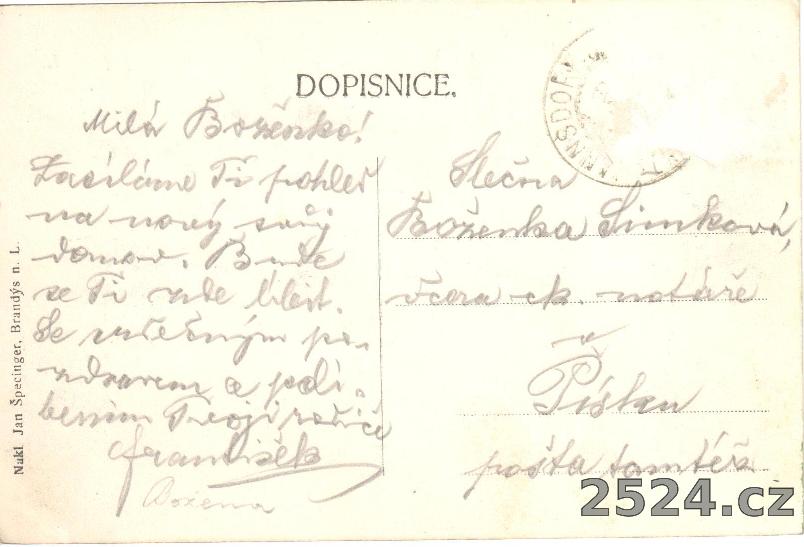 DOPISNICE.
Milá Boženko!
Zasíláme Ti pohled
na nový svůj
domov. Bude
se Ti zde líbit.
Se srdečným po-
zdravem a políbením Tvoji rodiče
František
Božena
Slečna
Boženka Šimková,
dcera ck. notáře
v
Písku
pošta tamtéž.
Nakl. Jan Špecinger, Brandýs n. L.
2524.cz